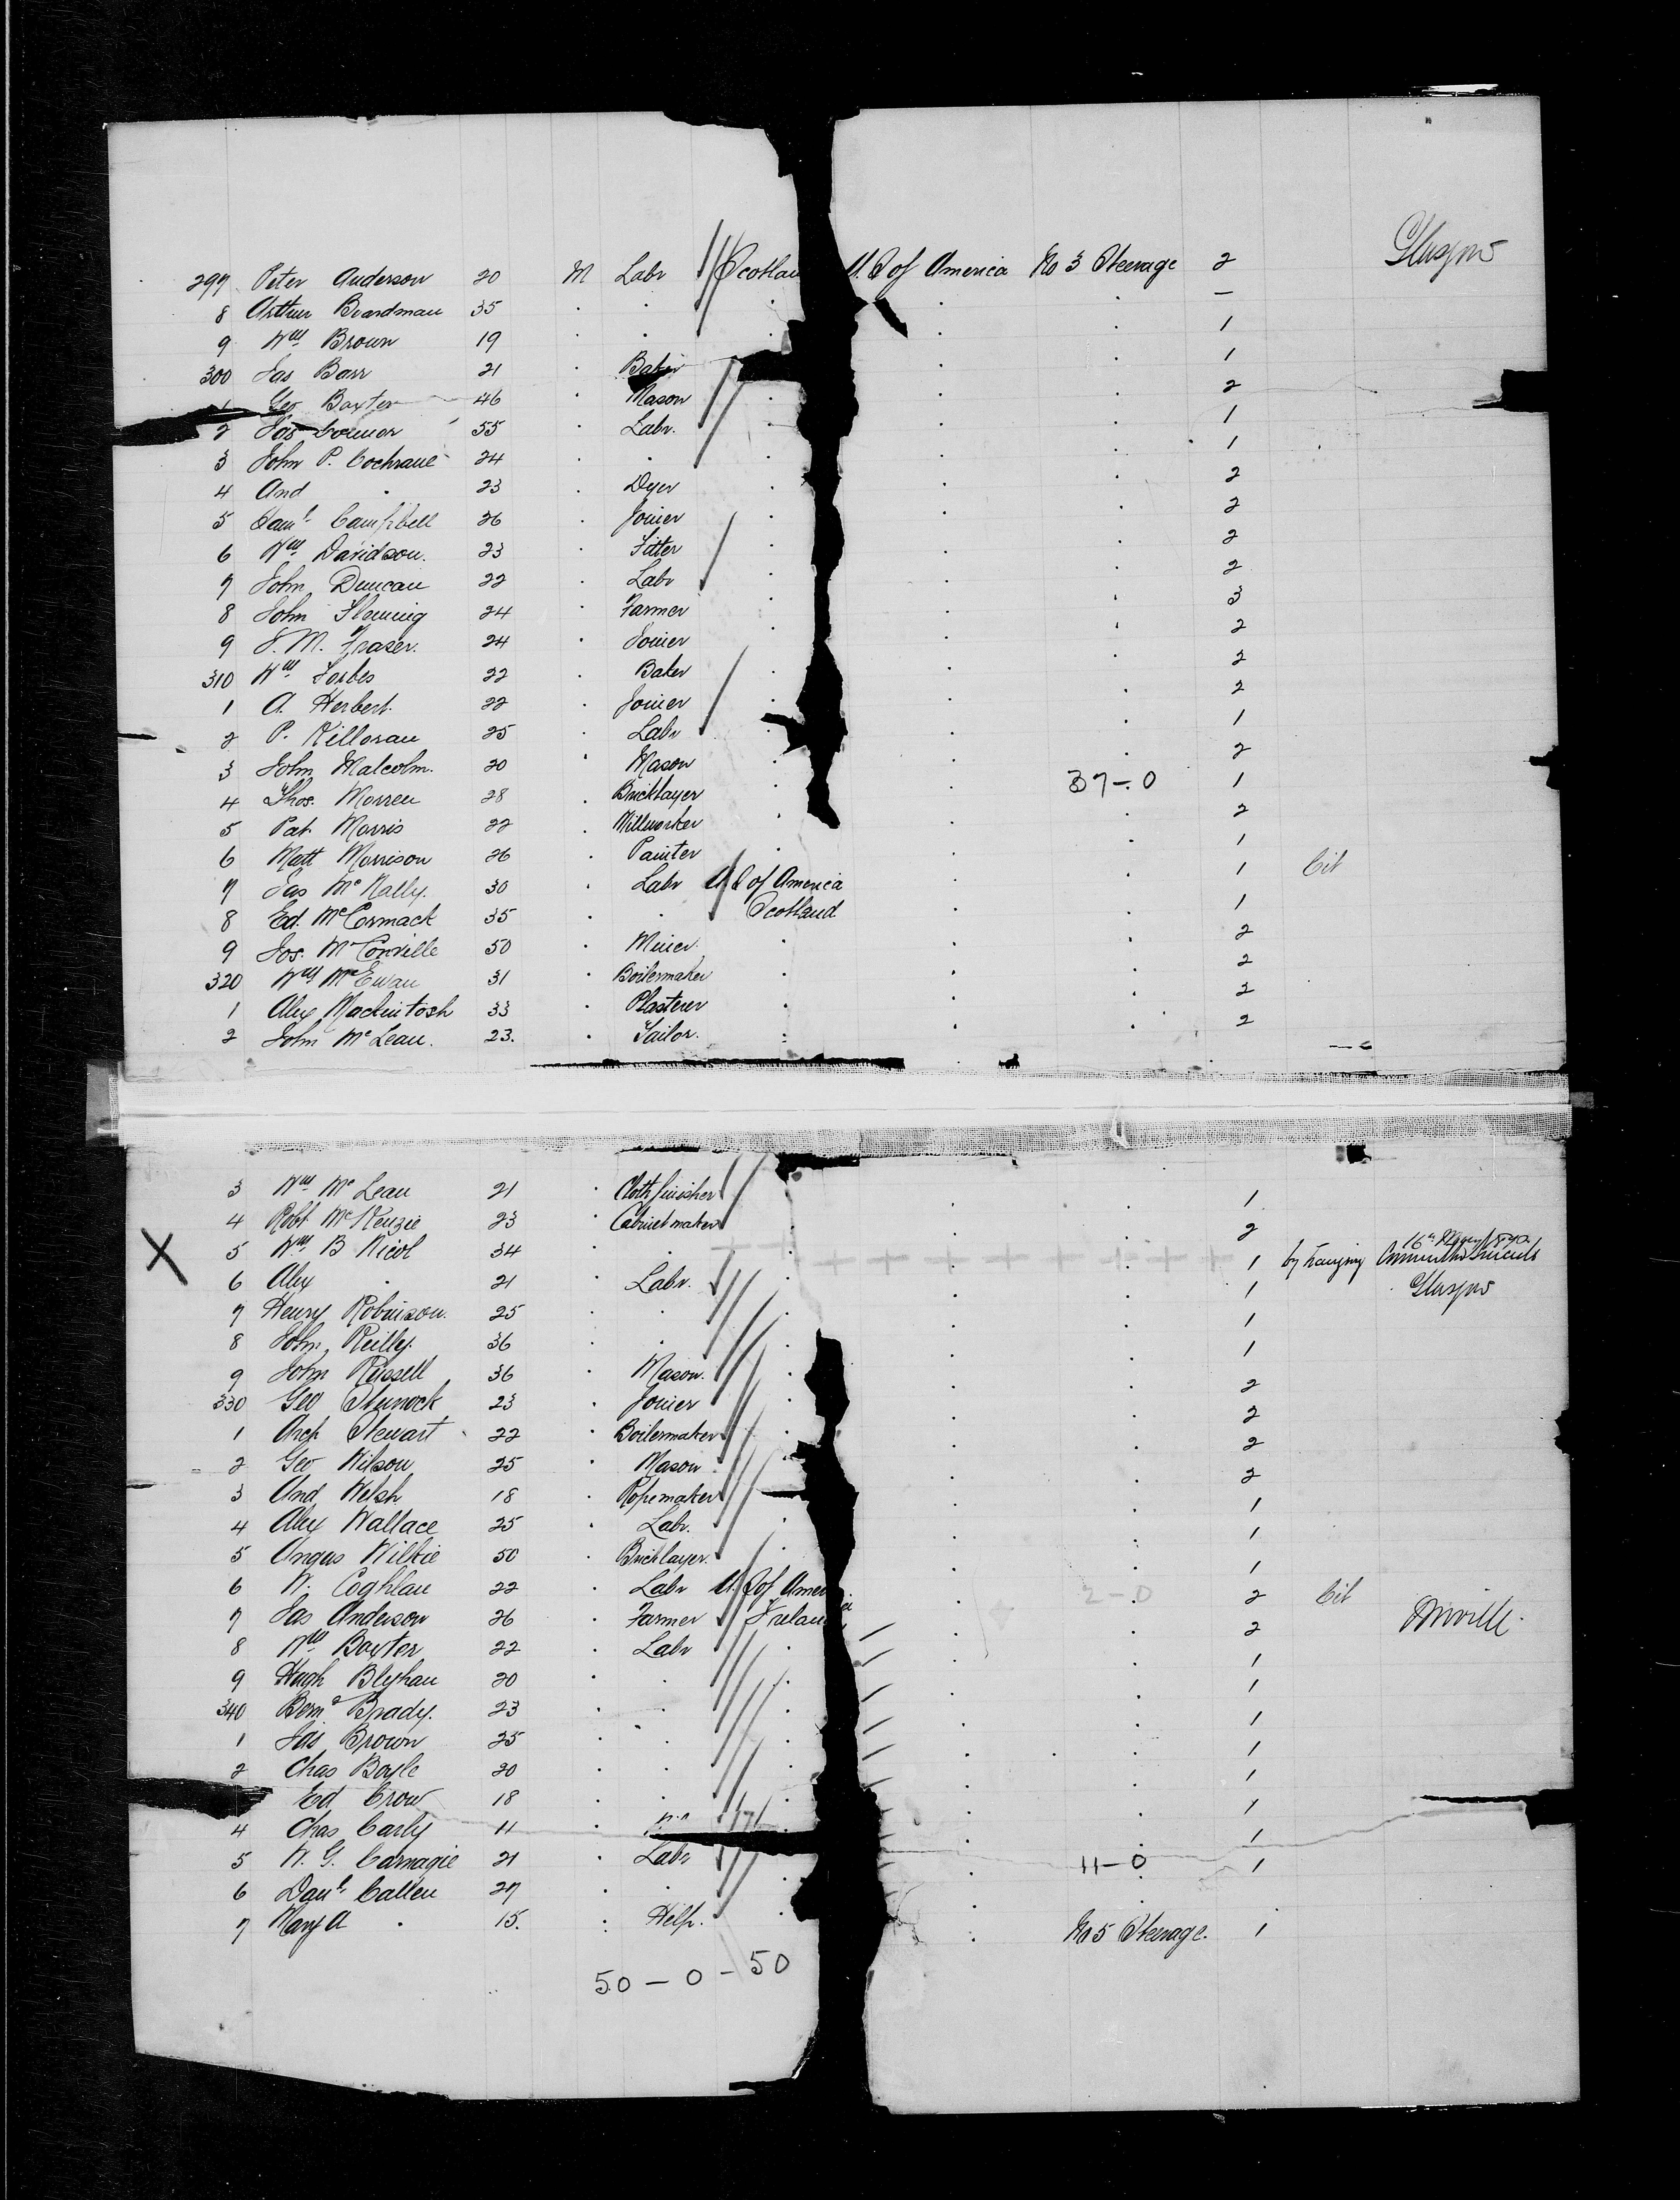 Glasgow
297 Peter Anderson 20 M Labr Scotlan U.S of America No 3 Steerage 2
8 Arthur Boardman 35 . . . . . —
9 Wm Brown 19 . . . . . 1
300 Jas Barr 21 . Baker . . . 1
1 Geo Baxter 46 . Mason . . . 2
2 Jas 55 . Labr. . . . 1
3 John P. Cochrane 24 . . . . . 1
4 And . 23 . Dyer . . . 2
5 Saml Campbell 26 . Joiner . . . 2
6 Wm Davidson. 23 . Fitter . . . 2
7 John Duncan 22 . Labr . . . 2
8 John Fleming 24 . Farmer . . . 3
9 J. M. Fraser. 24 . Joiner . . . 2
310 Wm Forbes 22 . Baker . . . 2
1 A. Herbert. 22 . Joiner . . . 2
2 P. Killoran 25 . Labr . . . 1
3 John Malcolm. 20 . Mason . . . 2
4 Thos. Morren 28 . Bricklayer . . 37-0 1
5 Pat Morris 22 . Millworker . . . 2
6 Matt Morrison 26 . Painter . . . 1
7 Jas McNally. 30 . Labr U.S of America . . 1 Cit
8 Ed. McCormack 35 . . Scotland . . 1
9 Jos. McConville 50 . Miner. . . . 2
320 Wm McEwan 31 . Boilermaker . . . 2
1 Alex Mackintosh 33 . Plasterer . . . 2
2 John McLean. 23. . Tailor. . . . 2
3 Wm McLean 21 . Cloth finisher . . 1
4 Robt McKenzie 23 . Cabinet maker . . 2
X 5 Wm B Nicol 34 . . + + + + + + + 1 by hanging Committed Suicide
6 Alex . 21 . Labr. . . 1 Glasgow
7 Henry Robinson. 25 . . . . . 1
8 John Reilly. 36 . . . . . 1
9 John Russell 36 . Mason. . . . 2
330 Geo 23 . Joiner . . . 2
1 Arch Stewart 22 . Boilermaker . . 2
2 Geo Wilson 25 . Mason . . . 2
3 And Welsh 18 . Ropemaker . . 1
4 Alex Wallace 25 . Labr. . . . 1
5 Angus Wilkie 50 . Bricklayer. . . 1
6 W. Coghlan 22 . Labr U.S of Ameri . 2-0 2 Cit
7 Jas Anderson 26 . Farmer Irelan . . 2
8 Wm Baxter 22 . Labr . . . 1
9 Hugh Blyhan 20 . . . . . 1
340 Bernd Brady. 23 . . . . . 1
1 Jas Brown 25 . . . . . 1
2 Chas Boyle 20 . . . . . 1
Ed Crow 18 . . . . . 1
4 Chas Carly 11 . . . 1
5 W. G. Carnagie 21 . Labr . 11-0 1
6 Danl Callen 27 . . . . .
7 Mary A . 15. : Help. . : No 5 Steerage. 1
50 - 0 - 50